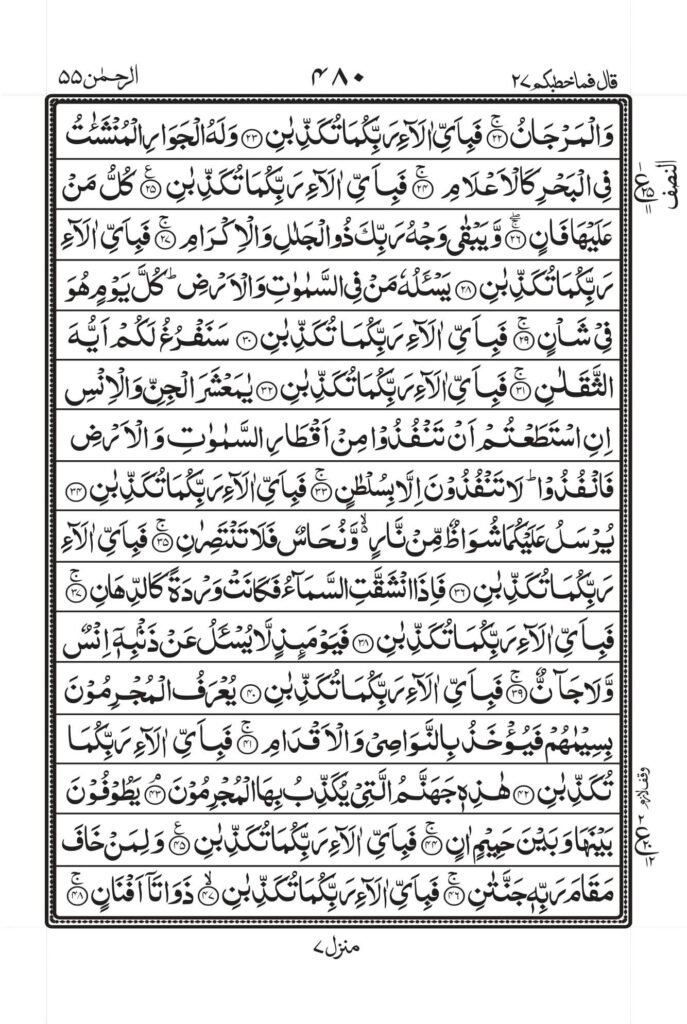 قال فما خطبكم ٢٧ ۴٨٠ الرحمٰن ۵۵
وَالۡمَرۡجَانُ‌ۚ ﴿۲۲﴾ فَبِاَىِّ اٰلَاۤءِ رَبِّكُمَا تُكَذِّبٰنِ ﴿۲۳﴾ وَلَهُ الۡجَوَارِ الۡمُنۡشَئٰتُ
فِى الۡبَحۡرِ كَالۡاَعۡلَامِ‌ۚ ﴿۲۴﴾ فَبِاَىِّ اٰلَاۤءِ رَبِّكُمَا تُكَذِّبٰنِ ﴿۲۵﴾ كُلُّ مَنۡ
عَلَيۡهَا فَانٍ‌ۚ ۖ‏ ﴿۲۶﴾ وَّيَبۡقٰى وَجۡهُ رَبِّكَ ذُو الۡجَلٰلِ وَالۡاِكۡرَامِ‌ۚ ﴿۲۷﴾ فَبِاَىِّ اٰلَاۤءِ
رَبِّكُمَا تُكَذِّبٰنِ ﴿۲۸﴾ يَسۡـَٔـلُهٗ مَنۡ فِى السَّمٰوٰتِ وَالۡاَرۡضِ‌ؕ كُلَّ يَوۡمٍ هُوَ
فِىۡ شَاۡنٍ‌ۚ ﴿۲۹﴾ فَبِاَىِّ اٰلَاۤءِ رَبِّكُمَا تُكَذِّبٰنِ ﴿۳۰﴾ سَنَفۡرُغُ لَكُمۡ اَيُّهَ
الثَّقَلٰنِ‌ۚ ﴿۳۱﴾ فَبِاَىِّ اٰلَاۤءِ رَبِّكُمَا تُكَذِّبٰنِ ﴿۳۲﴾ يٰمَعۡشَرَ الۡجِنِّ وَالۡاِنۡسِ
اِنِ اسۡتَطَعۡتُمۡ اَنۡ تَنۡفُذُوۡا مِنۡ اَقۡطَارِ السَّمٰوٰتِ وَالۡاَرۡضِ
فَانۡفُذُوۡا‌ؕ لَا تَنۡفُذُوۡنَ اِلَّا بِسُلۡطٰنٍ‌ۚ ﴿۳۳﴾ فَبِاَىِّ اٰلَاۤءِ رَبِّكُمَا تُكَذِّبٰنِ ﴿۳۴﴾
يُرۡسَلُ عَلَيۡكُمَا شُوَاظٌ مِّنۡ نَّارٍ ۙ وَّنُحَاسٌ فَلَا تَنۡتَصِرٰنِ‌ۚ ﴿۳۵﴾ فَبِاَىِّ اٰلَاۤءِ
رَبِّكُمَا تُكَذِّبٰنِ ﴿۳۶﴾ فَاِذَا انْشَقَّتِ السَّمَآءُ فَكَانَتۡ وَرۡدَةً كَالدِّهَانِ‌ۚ ﴿۳۷﴾
فَبِاَىِّ اٰلَاۤءِ رَبِّكُمَا تُكَذِّبٰنِ ﴿۳۸﴾ فَيَوۡمَٮِٕذٍ لَّا يُسۡـَٔـلُ عَنۡ ذَنۡۢبِهٖۤ اِنۡسٌ
وَّلَا جَآنٌّ‌ۚ ﴿۳۹﴾ فَبِاَىِّ اٰلَاۤءِ رَبِّكُمَا تُكَذِّبٰنِ ﴿۴۰﴾ يُعۡرَفُ الۡمُجۡرِمُوۡنَ
بِسِيۡمٰهُمۡ فَيُؤۡخَذُ بِالنَّوَاصِىۡ وَ الۡاَقۡدَامِ‌ۚ ﴿۴۱﴾ فَبِاَىِّ اٰلَاۤءِ رَبِّكُمَا
تُكَذِّبٰنِ ﴿۴۲﴾ هٰذِهٖ جَهَنَّمُ الَّتِىۡ يُكَذِّبُ بِهَا الۡمُجۡرِمُوۡنَ‌ۘ ﴿۴۳﴾ يَطُوۡفُوۡنَ
بَيۡنَهَا وَبَيۡنَ حَمِيۡمٍ اٰنٍ‌ۚ ﴿۴۴﴾ فَبِاَىِّ اٰلَاۤءِ رَبِّكُمَا تُكَذِّبٰنِ ﴿۴۵﴾ وَلِمَنۡ خَافَ
مَقَامَ رَبِّهٖ جَنَّتٰنِ‌ۚ ﴿۴۶﴾ فَبِاَىِّ اٰلَاۤءِ رَبِّكُمَا تُكَذِّبٰنِۙ ﴿۴۷﴾ ذَوَاتَاۤ اَفۡنَانٍ‌ۚ ﴿۴۸﴾
النصف
وقف لازم
منزل ٧